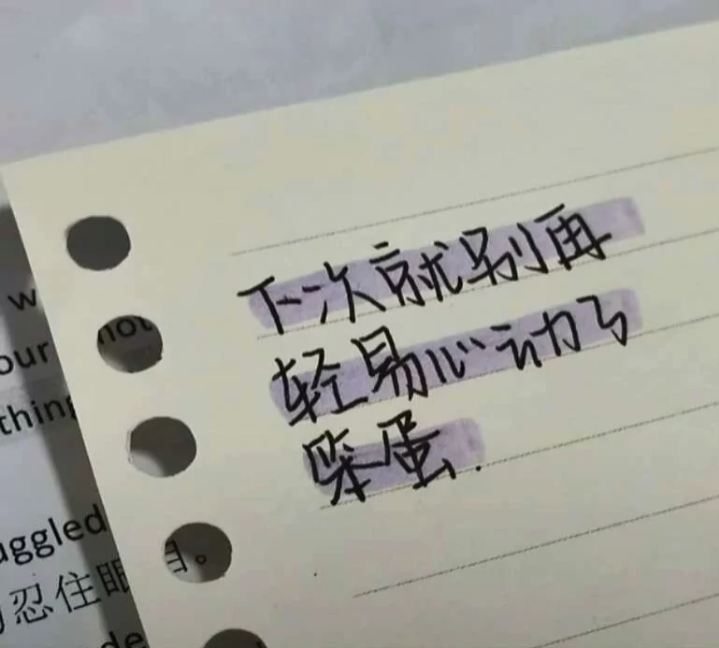 下次就别再
轻易心动了
笨蛋.
w
our not
thing
uggled
忍住眼
目。
de